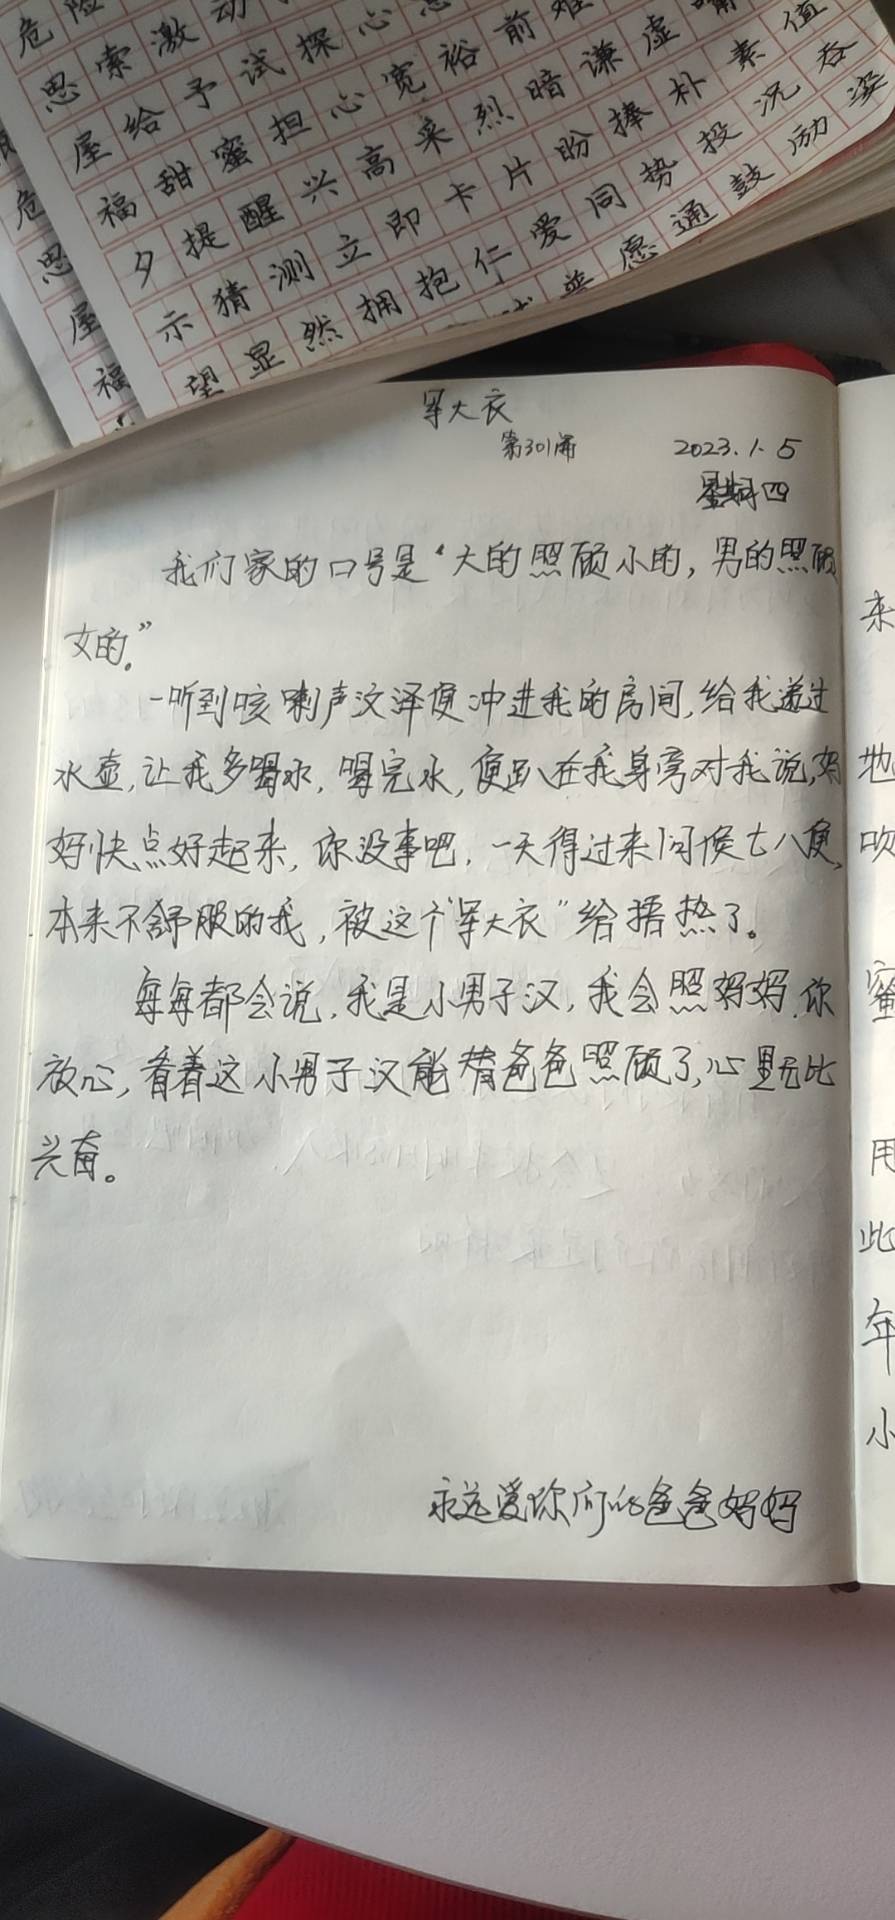 危险
思索激动
屋给予试探心
福甜蜜担心宽裕前难
夕提醒兴高采烈暗谦虚
示猜测立即卡片盼捧朴素值
望显然拥抱仁爱同势投况吞
普愿通鼓励姿
危
思
屋
福
军大衣
第301篇
2023.1.5
星期四
我们家的口号是“大的照顾小的，男的照顾
女的。”
一听到咳嗽声汶泽便冲进我的房间，给我递过
水壶，让我多喝水，喝完水，便趴在我身旁对我说，妈
妈快点好起来，你没事吧，一天得过来问候七八便，
本来不舒服的我，被这个“军大衣”给捂热了。
每每都会说，我是小男子汉，我会照妈妈，你
放心，看着这小男子汉能替爸爸照顾了，心里无比
兴奋。
永远爱你们的爸爸妈妈
来
地
吹
蜜
用
此
年
小